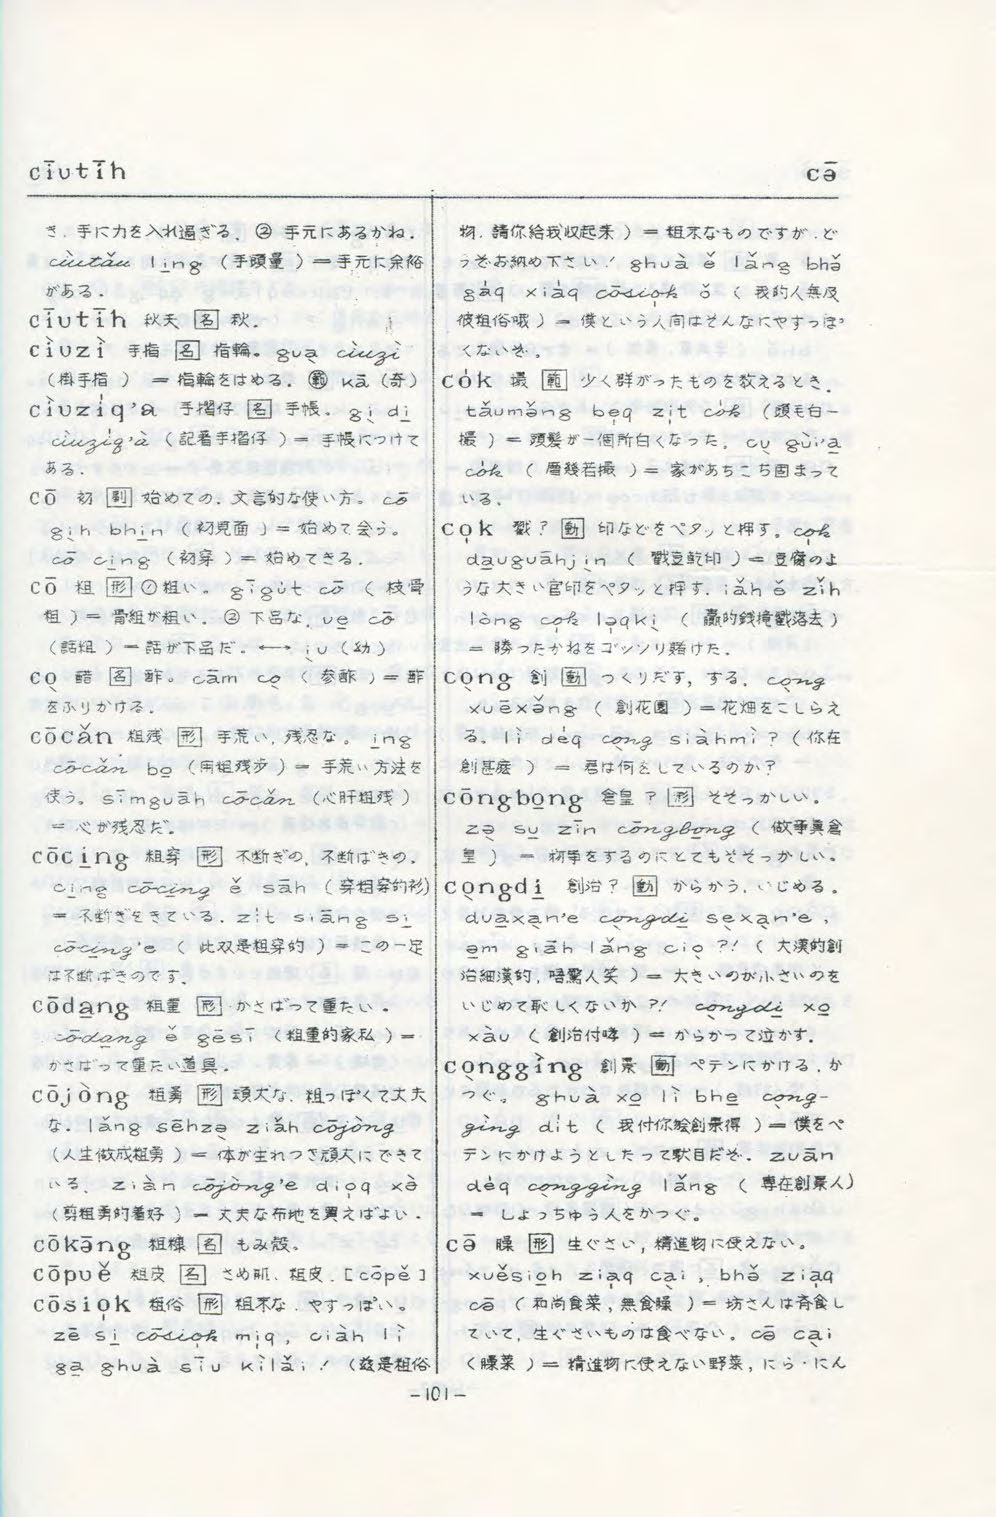 cīutīh
cə̄
き．手に力を入れ過ぎる．② 手元にあるかね．
ciùtǎu liɲg（手頭量）＝手元に余裕
がある．
cīutīh 秋天 [名] 秋．
cìuzì 手指 [名] 指輪。gua̱ cìuzì
（掛手指）＝指輪をはめる．㊞ kā（奇）
cìuzi̍q'a 手摺仔 [名] 手帳．gi̱ di̱
cìuzi̍q'à（記着手摺仔）＝手帳につけて
ある．
cō 初 [副] 始めての．文言的な使い方。cō
gi̱h bhi̱n（初見面）＝始めて会う。
cō ci̱ng（初穿）＝始めてきる．
cō 粗 [形] ①粗い。gīgút cō（枝骨
粗）＝骨組が粗い．② 下品な．u̱e cō
（話粗）＝話が下品だ．←→ iu（幼）
co̱ 醋 [名] 酢。cām co̱（参酢）＝酢
をふりかける．
cōcǎn 粗残 [形] 手荒い，残忍な。i̱ng
cōcǎn bo̱（用粗残步）＝手荒い方法を
使う。sīmguāh cōcǎn（心肝粗残）
＝心が残忍だ。
cōci̱ng 粗穿 [形] 不断ぎの，不断ばきの．
ci̱ng cōci̱ng ě sāh（穿粗穿的衫）
＝不断ぎをきている．zi̍t siāng si̱
cōci̱ng'e（此双是粗穿的）＝この一足
は不断ばきのです．
cōda̱ng 粗重 [形] かさばって重たい．
cōda̱ng ě gēsī（粗重的家私）＝
かさばって重たい道具．
cōjòng 粗勇 [形] 頑丈な．粗っぽくて丈夫
な．lǎng sēhzə̱ ziàh cōjòng
（人生做成粗勇）＝体が生れつき頑丈にできて
いる．ziàn cōjòng'e dio̱q xə̀
（剪粗勇的着好）＝丈夫な布地を買えばよい．
cōkāng 粗糠 [名] もみ殻。
cōpuě 粗皮 [名] さめ肌．粗皮．[cōpě]
cōsio̍k 粗俗 [形] 粗末な．やすっぽい。
zē si̱ cōsio̍k mi̍q, ciàh lì
ga̱ ghuà sīu kìlǎi！（玆是粗俗
物．請你給我收起来）＝粗末なものですが．ど
うぞお納め下さい！ ghuà ě lǎng bhǒ
gáq xiáq cōsio̍k ǒ（我的人無及
彼粗俗哦）＝僕という人間はそんなにやすっぽ
くないぞ．
có̍k 撮 [範] 少く群がったものを教えるとき．
tǎumə̌ng be̍q zi̍t có̍k（頭毛白一
撮）＝頭髪が一個所白くなった。cu̱ gùi'a̱
có̍k（厝幾若撮）＝家があちこち固まって
いる．
co̍k 戳？ [動] 印などをペタッと押す。co̍k
da̱uguāhji̱n（戳豆乾印）＝豆腐のよ
うな大きい官印をペタッと押す．iǎh ě zǐh
lòng co̍k lə̍qki̱（贏的銭攏戳落去）
＝勝ったかねをゴッソリ賭けた．
co̱ng 創 [動] つくりだす，する．co̱ng
xuēxə̌ng（創花園）＝花畑をこしらえ
る．lì déq co̱ng siàhmì？（你在
創甚麼）＝君は何をしているのか？
cōngbo̱ng 倉皇？ [形] そそっかしい。
zə̱ su̱ zīn cōngbo̱ng（做事真倉
皇）＝何事をするのにとてもそそっかしい。
co̱ngdi̱ 創治？ [動] からかう．いじめる。
dua̱xa̱n'e co̱ngdi̱ se̱xa̱n'e．
ə̱m giāh lǎng cio̱?!（大漢的創
治細漢的，唔驚人笑）＝大きいのが小さいのを
いじめて恥しくないか?! co̱ngdi̱ xo̱
xàu（創治付哮）＝からかって泣かす．
co̱nggìng 創景 [動] ペテンにかける．か
つぐ。ghuà xo̱ lì bhe̱ co̱ng-
gìng dít（我付你袂創景得）＝僕をペ
テンにかけようとしたって駄目だぞ．zuān
déq co̱nggìng lǎng（専在創景人）
＝しょっちゅう人をかつぐ。
cə̄ 臊 [形] 生ぐさい，精進物に使えない。
xuěsio̱h zia̍q ca̱i，bhə̌ zia̍q
cə̄（和尚食菜，無食臊）＝坊さんは斉食し
ていて，生ぐさいものは食べない。cə̄ ca̱i
（臊菜）＝精進物に使えない野菜，にら・にん
−101−